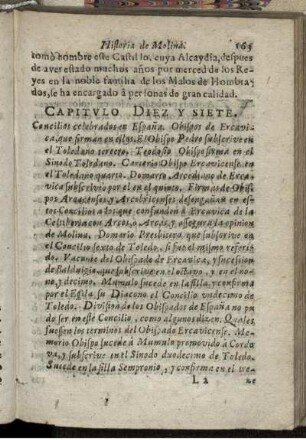 Historia de Molina. 163
tomò nombre este Castillo, cuya Alcaydia, despues
de aver estado muchos años por merced de los Re-
yes en la noble familia de los Malos de Hombra-
dos, se ha encargado à personas de gran calidad.
CAPITVLO DIEZ Y SIETE.
Concilios celebrados en España. Obispos de Ercavi-
ca, que firman en ellos. El Obispo Pedro subscrive en
el Toledano tercero, Teodosio Obispo firma en el
Sinodo Toledano. Carterio Obispo Ercavicense, en
el Toledano quarto. Domario, Arcediano de Erca-
vica subscrivio por el en el quinto. Firmas de Obis-
pos Arcadenses, y Arcobricenses desengañan en es-
tos Concilios à los que confunden à Ercavica de la
Celtiberia con Arcos, ò Arcas, y asegura la opinion
de Molina, Domario Presbitero, que subscrive en
el Concilio sexto de Toledo, si fue el mismo referi-
do, Vacante del Obispado de Ercavica, y succession
de Balduigio que subscrive en el octavo, y en el no-
no, y decimo. Mumulo sucede en la silla, y confirma
por el Egila su Diacono el Concilio undecimo de
Toledo. Division de los Obispados de España no pu-
do ser en este Concilio, como algunos dizen. Quales
fuessen los terminos del Obispado Ercavicense. Me-
morio Obispo sucede à Mumulo promovido à Cordo-
va, y subscrive en el Sinodo duodecimo de Toledo.
Sucede en la silla Sempronio, y confirma en el
L 2